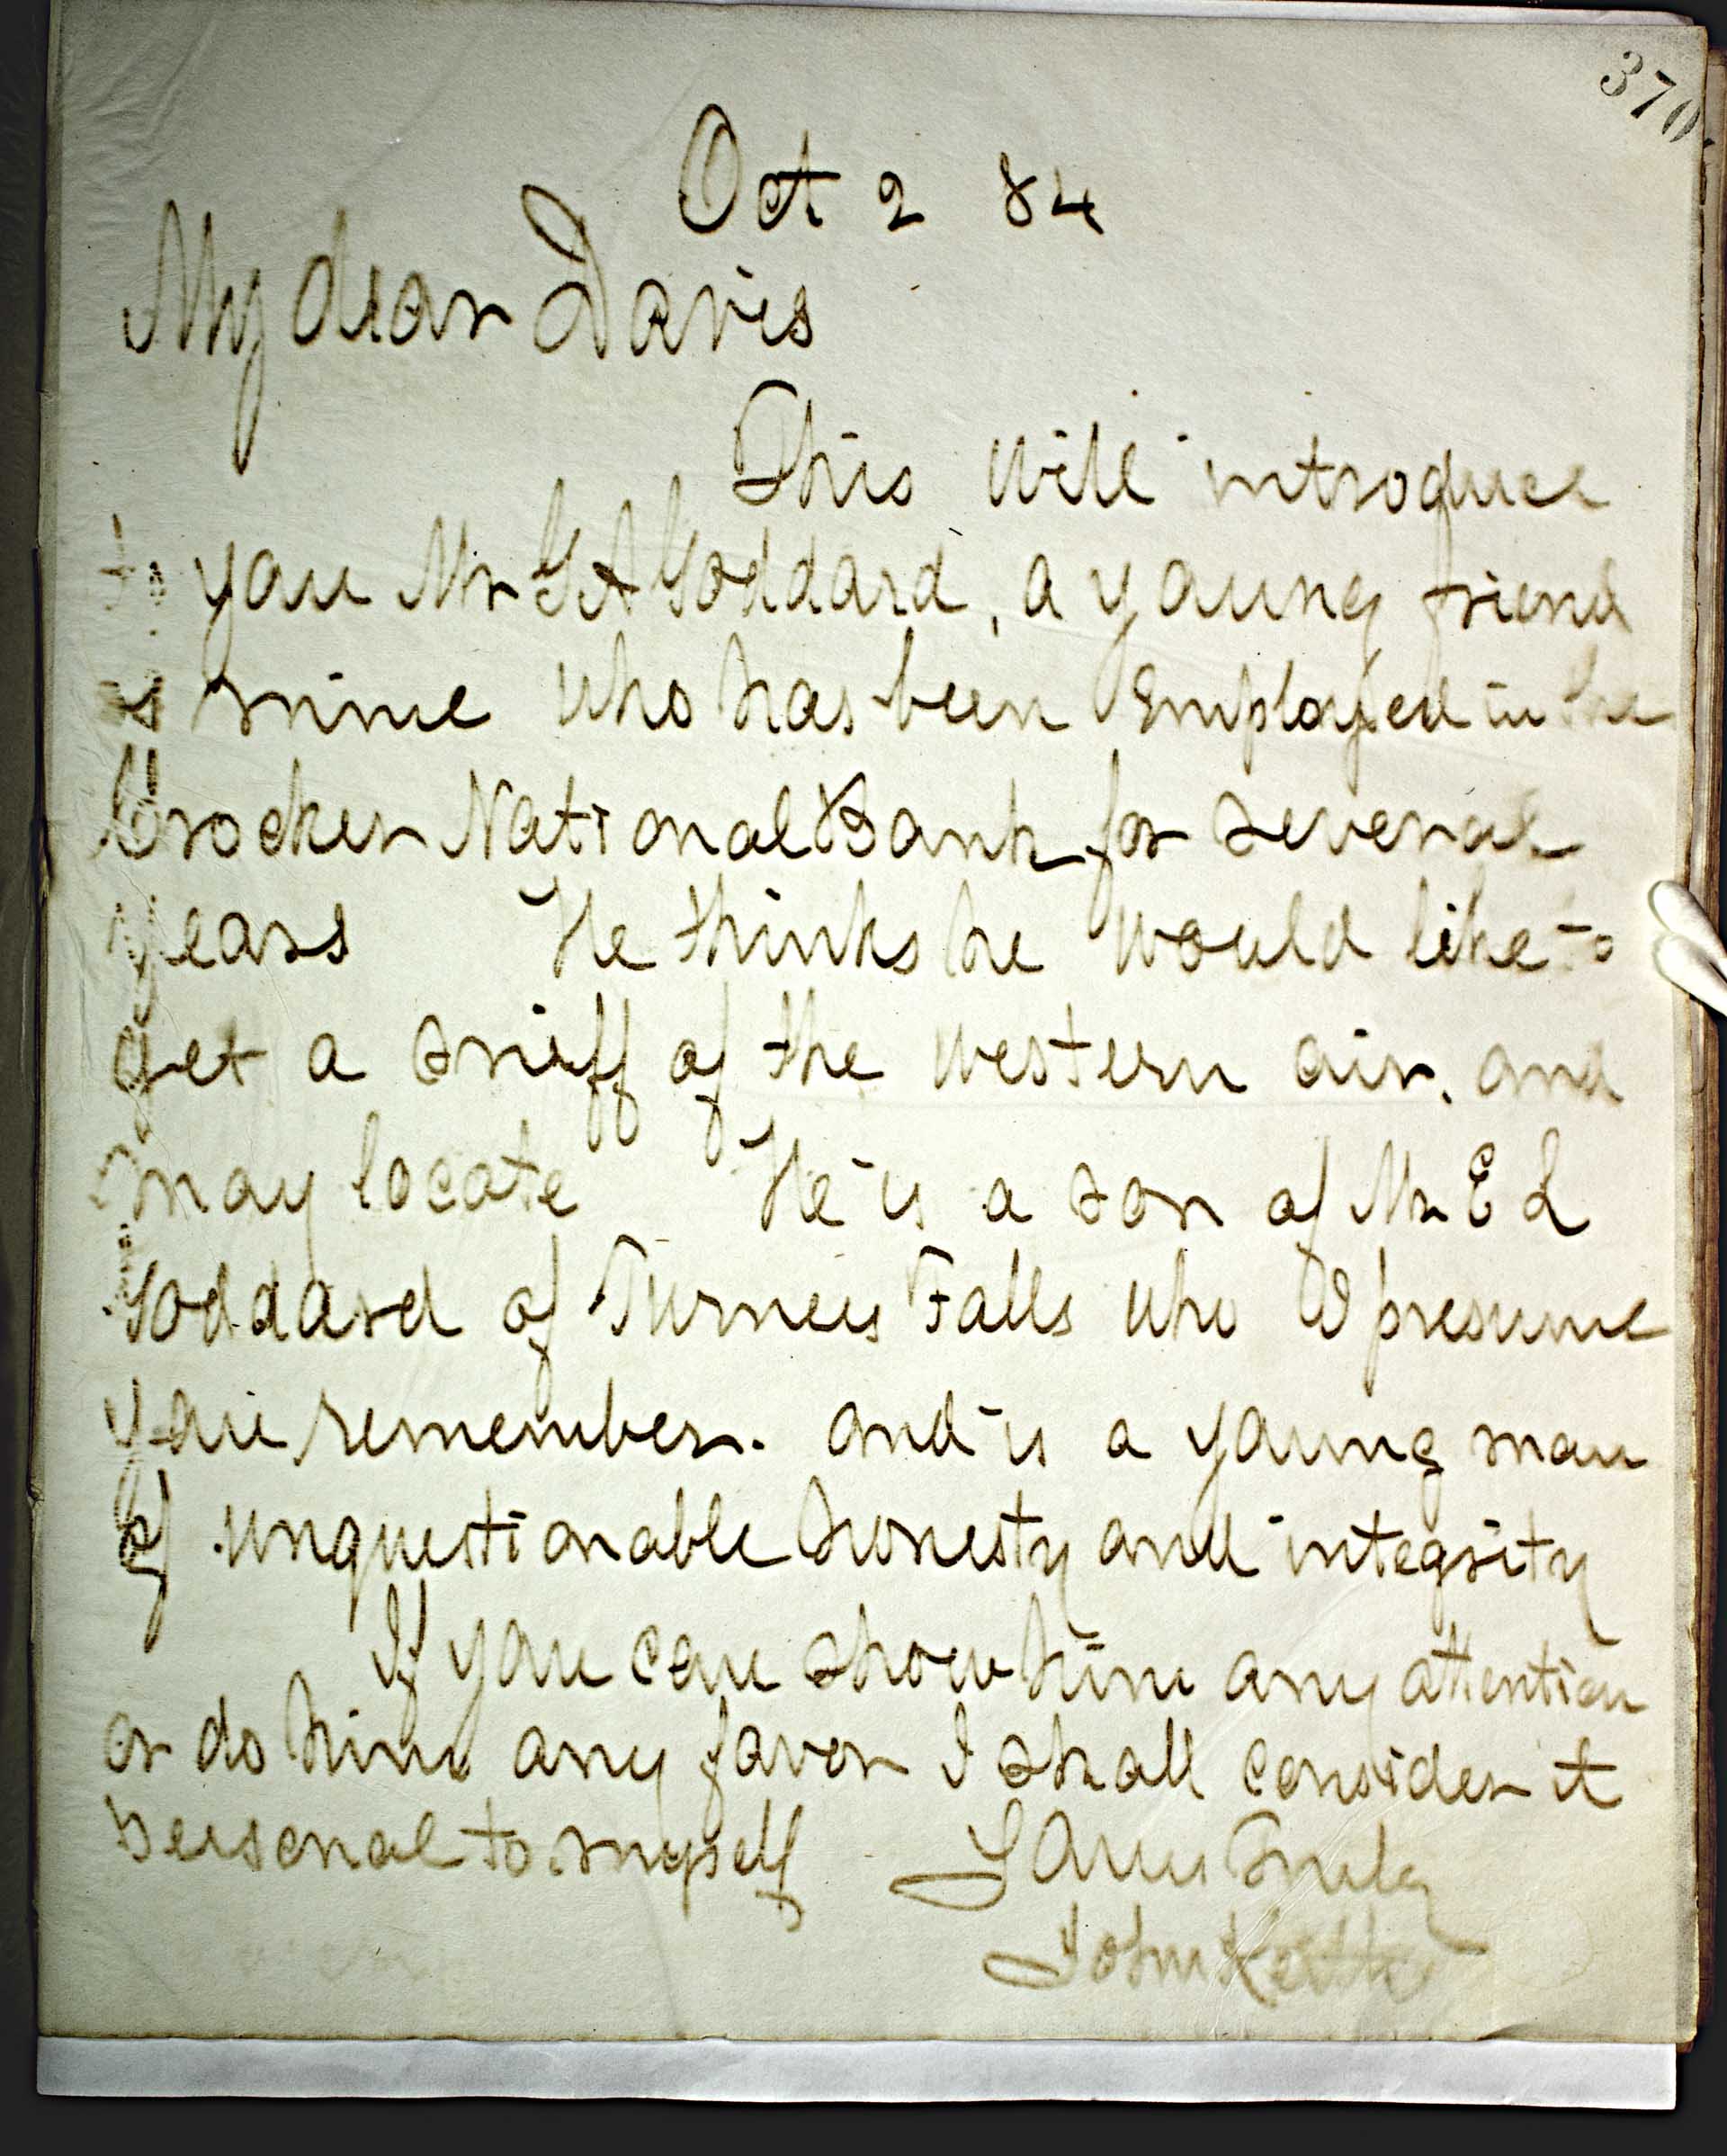 370
Oct 2 84
My dear Davis
This will introduce
to you Mr G A Goddard, a young friend
of mine who has been employed in the
Crocker National Bank for several
years He thinks he would like to
get a sniff of the western air. and
may locate He is a son of Mr E L
Goddard of Turners Falls who I presume
you remember. and is a young man
of unquestionable honesty and integrity
If you can show him any attention
or do him any favor I shall consider it
personal to myself Yours Truly
John Keith